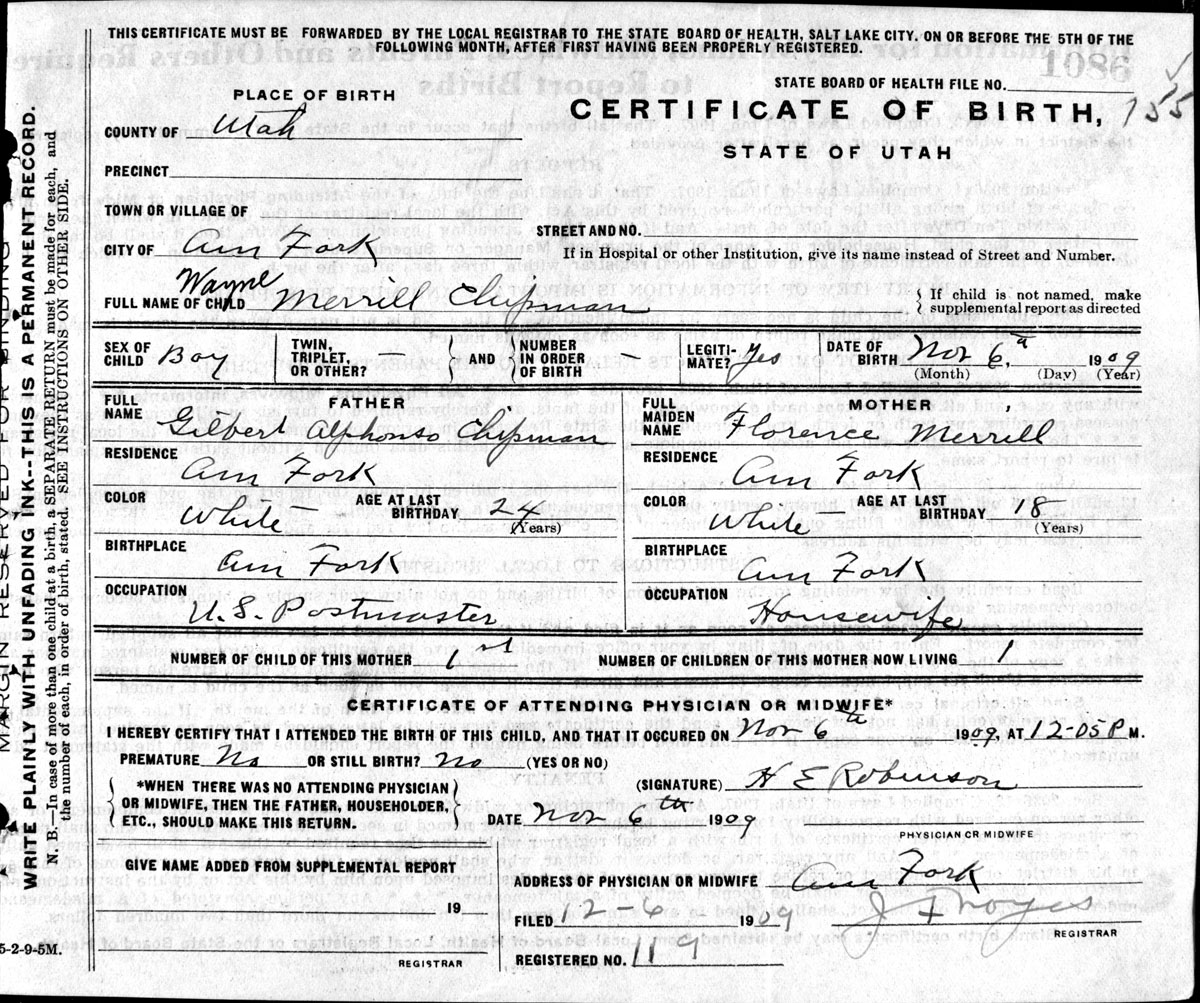 THIS CERTIFICATE MUST BE FORWARDED BY THE LOCAL REGISTRAR TO THE STATE BOARD OF HEALTH, SALT LAKE CITY. ON OR BEFORE THE 5TH OF THE
FOLLOWING MONTH, AFTER FIRST HAVING BEEN PROPERLY REGISTERED.
1086
STATE BOARD OF HEALTH FILE NO.
PLACE OF BIRTH
CERTIFICATE OF BIRTH, 755
COUNTY OF Utah
STATE OF UTAH
PRECINCT
TOWN OR VILLAGE OF
STREET AND NO.
CITY OF Am Fork
If in Hospital or other Institution, give its name instead of Street and Number.
FULL NAME OF CHILD Wayne Merrill Chipman
If child is not named, make
supplemental report as directed
SEX OF CHILD Boy TWIN, TRIPLET, OR OTHER? — AND NUMBER IN ORDER OF BIRTH — LEGITI-MATE? Yes DATE OF BIRTH Nov 6th, 1909
(Month) (Day) (Year)
FATHER
FULL NAME Gilbert Alphonso Chipman
RESIDENCE Am Fork
COLOR White AGE AT LAST BIRTHDAY 24 (Years)
BIRTHPLACE Am Fork
OCCUPATION U.S. Postmaster
MOTHER
FULL MAIDEN NAME Florence Merrill
RESIDENCE Am Fork
COLOR White AGE AT LAST BIRTHDAY 18 (Years)
BIRTHPLACE Am Fork
OCCUPATION Housewife
NUMBER OF CHILD OF THIS MOTHER 1st NUMBER OF CHILDREN OF THIS MOTHER NOW LIVING 1
CERTIFICATE OF ATTENDING PHYSICIAN OR MIDWIFE*
I HEREBY CERTIFY THAT I ATTENDED THE BIRTH OF THIS CHILD, AND THAT IT OCCURED ON Nov 6th 1909, AT 12-05 P M.
PREMATURE No OR STILL BIRTH? No (YES OR NO)
*WHEN THERE WAS NO ATTENDING PHYSICIAN
OR MIDWIFE, THEN THE FATHER, HOUSEHOLDER,
ETC., SHOULD MAKE THIS RETURN.
(SIGNATURE) H E Robinson
DATE Nov 6th 1909
PHYSICIAN OR MIDWIFE
GIVE NAME ADDED FROM SUPPLEMENTAL REPORT
19
REGISTRAR
ADDRESS OF PHYSICIAN OR MIDWIFE Am Fork
FILED 12-6 1909 J F Noyes
REGISTRAR
REGISTERED NO. 119
5-2-9-5M.
MARGIN RESERVED FOR BINDING
WRITE PLAINLY WITH UNFADING INK--THIS IS A PERMANENT RECORD.
N. B.—In case of more than one child at a birth, a SEPARATE RETURN must be made for each, and
the number of each, in order of birth, stated. SEE INSTRUCTIONS ON OTHER SIDE.